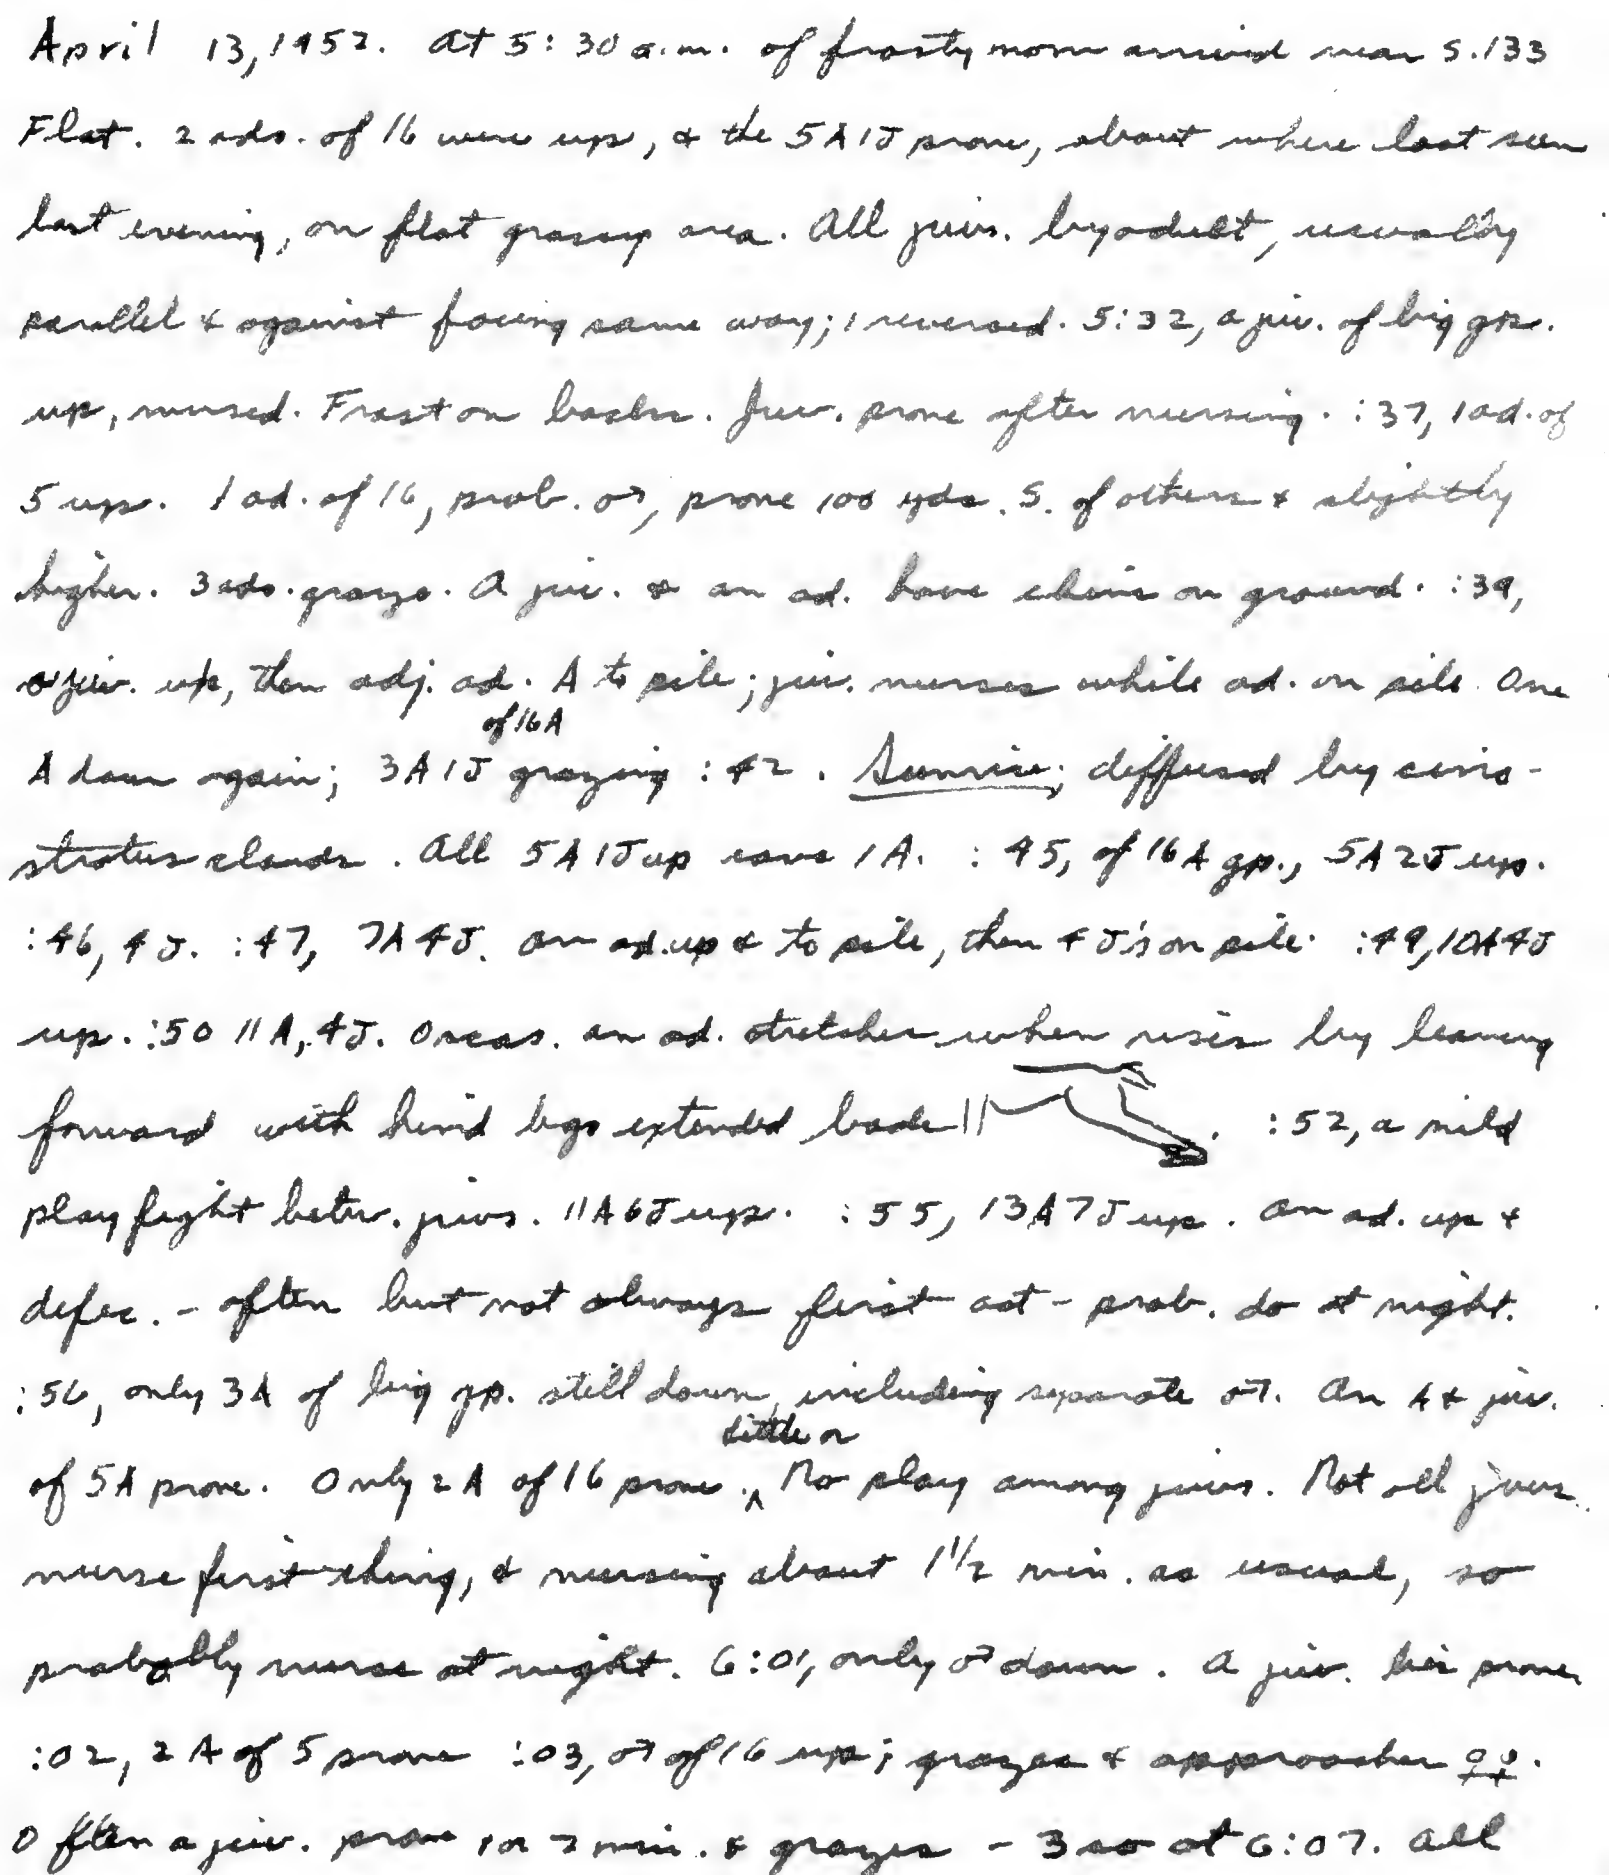 April 13, 1952. At 5:30 a.m. of frosty morn arrived near S.133
Flat. 2 ads. of 16 were up, & the 5A1J prone, about where last seen
last evening, on flat grassy area. All juvs. by adult, usually
parallel & against facing same way; 1 reversed. 5:32, a juv. of big gp.
up, nursed. Frost on backs. Juv. prone after nursing. :37, 1 ad. of
5 up. 1 ad. of 16, prob. ♂, prone 100 yds. S. of others & slightly
higher. 3 ads. graze. A juv. & an ad. have chins on ground. :39,
a juv. up, then adj. ad. A to pile; juv. nurses while ad. on pile. One
of 16A
A down again; 3A1J grazing :42. Sunrise; diffused by cirro-
stratus clouds. All 5A1J up save 1A. :45, of 16A gp., 5A2J up.
:46, 4J. :47, 7A4J. An ad. up & to pile, then 4 J's on pile. :49, 10A4J
up. :50 11A, 4J. Occas. an ad. stretches when rises by leaning
forward with hind legs extended back . :52, a mild
play fight betw. juvs. 11A6J up. :55, 13A7J up. An ad. up &
defec. - often but not always first act - prob. do at night.
:56, only 3A of big gp. still down, including separate ♂. An A & juv.
little or
of 5A prone. Only 2A of 16 prone. ^ No play among juvs. Not all juvs
nurse first thing, & nursing about 1 1/2 min. as usual, so
probably nurse at night. 6:01, only ♂ down. A juv. lies prone
:02, 2A of 5 prone :03, ♂ of 16 up; grazes & approaches ♀♀.
Often a juv. prone 1 or 2 min. & grazes - 3 so at 6:07. All